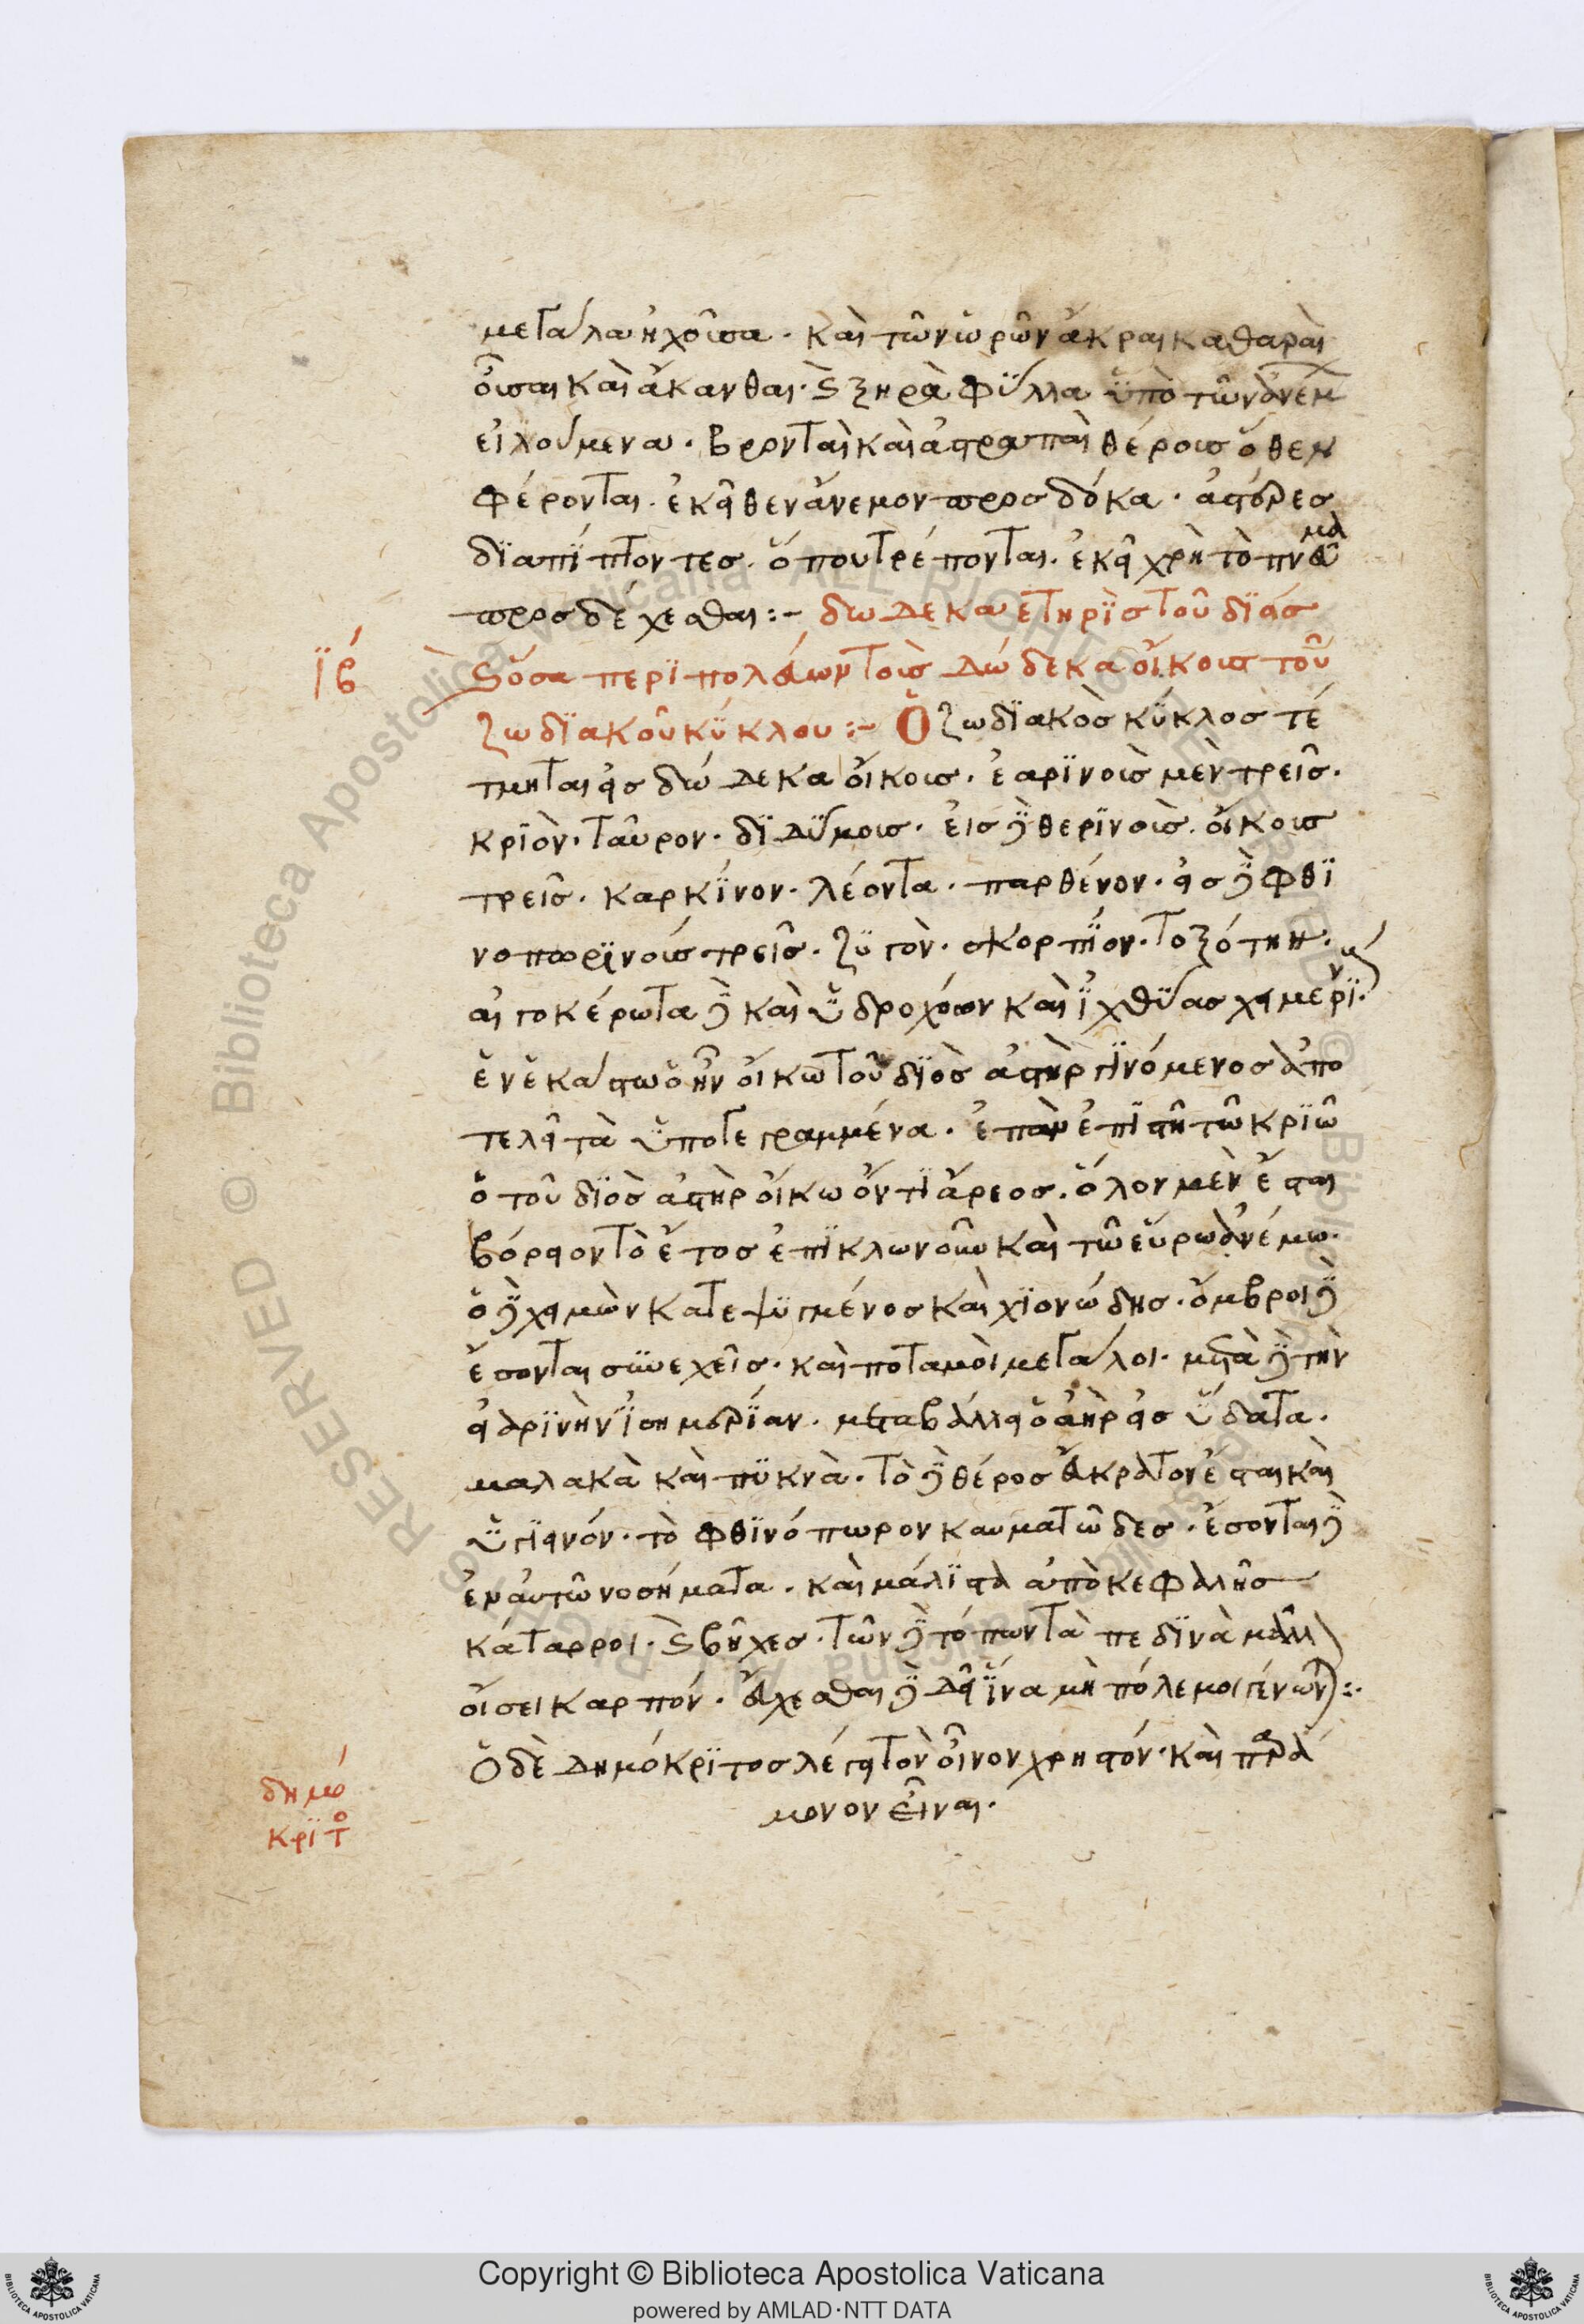 μεγάλα ἠχοῦσα· καὶ τῶν ὠρῶν ἄκραι καθαραὶ
οὖσαι καὶ ἄκανθαι· καὶ ξηρὰ φύλλα ὑπὸ τῶν ἀνέμ
εἰλούμενα· βρονταὶ καὶ ἀστραπαὶ θέρους ὅθεν
φέρονται· ἐκεῖθεν ἄνεμον προσδόκα· ἀστέρες
διαπίπτοντες· ὅπου τρέπονται· ἐκεῖ χρὴ τὸ πνεῦμα
προσδέχεσθαι:- δωδεκαετηρὶς τοῦ διός
ιβ καὶ ὅσα περιπολεύων τοὺς δώδεκα οἴκους τοῦ
ζωδιακοῦ κύκλου:- Ὁ ζωδιακὸς κύκλος τέ
τμηται εἰς δώδεκα οἴκους· ἐαρινοὺς μὲν τρεῖς·
κριὸν· ταῦρον· διδύμους· εἰς δὲ θερινοὺς οἴκους
τρεῖς· καρκίνον· λέοντα· παρθένον· εἰς δὲ φθι
νοπωρινοὺς τρεῖς· ζυγὸν· σκορπίον· τοξότην·
αἰγοκέρωτα δὲ καὶ ὑδροχόον καὶ ἰχθύας χειμερι νούς·
ἐν ἑκάστω οὖν οἴκω τοῦ διὸς ἀστὴρ γινόμενος ἀπο
τελεῖ τὰ ὑπογεγραμμένα· ἐπὰν ἐπιστῆ τῶ κριῶ
ὁ τοῦ διὸς ἀστὴρ οἴκω ὄντι ἄρεος· ὅλον μὲν ἔσται
βόρειον τὸ ἔτος ἐπικλωνοῦν καὶ τῶ εὔρω ἀνέμω·
ὁ δὲ χειμὼν κατεψυγμένος καὶ χιονώδης· ὄμβροι δὲ
ἔσονται συνεχεῖς· καὶ ποταμοὶ μεγάλοι· μετὰ δὲ τὴν
εἰαρινὴν ἰσημερίαν· μεταβάλλει ὁ ἀὴρ εἰς ὕδατα·
μαλακὰ καὶ πυκνὰ· τὸ δὲ θέρος εὔκρατον ἔσται καὶ
ὑγιεινόν· τὸ φθινόπωρον καυματῶδες· ἔσονται δὲ
ἐν αὐτῶ νοσήματα· καὶ μάλιστα ἀπὸ κεφαλῆς
κάταρροι· καὶ βῆχες· τῶν δὲ τόπων τὰ πεδινὰ μᾶλλ
οἴσει καρπόν· εὔχεσθαι δὲ δεῖ ἵνα μὴ πόλεμοι γένων:·
Ὁ δὲ Δημόκριτος λέγει τὸν οἶνον χρηστόν· καὶ παρά
μονον εἶναι·
δημό
κριτο